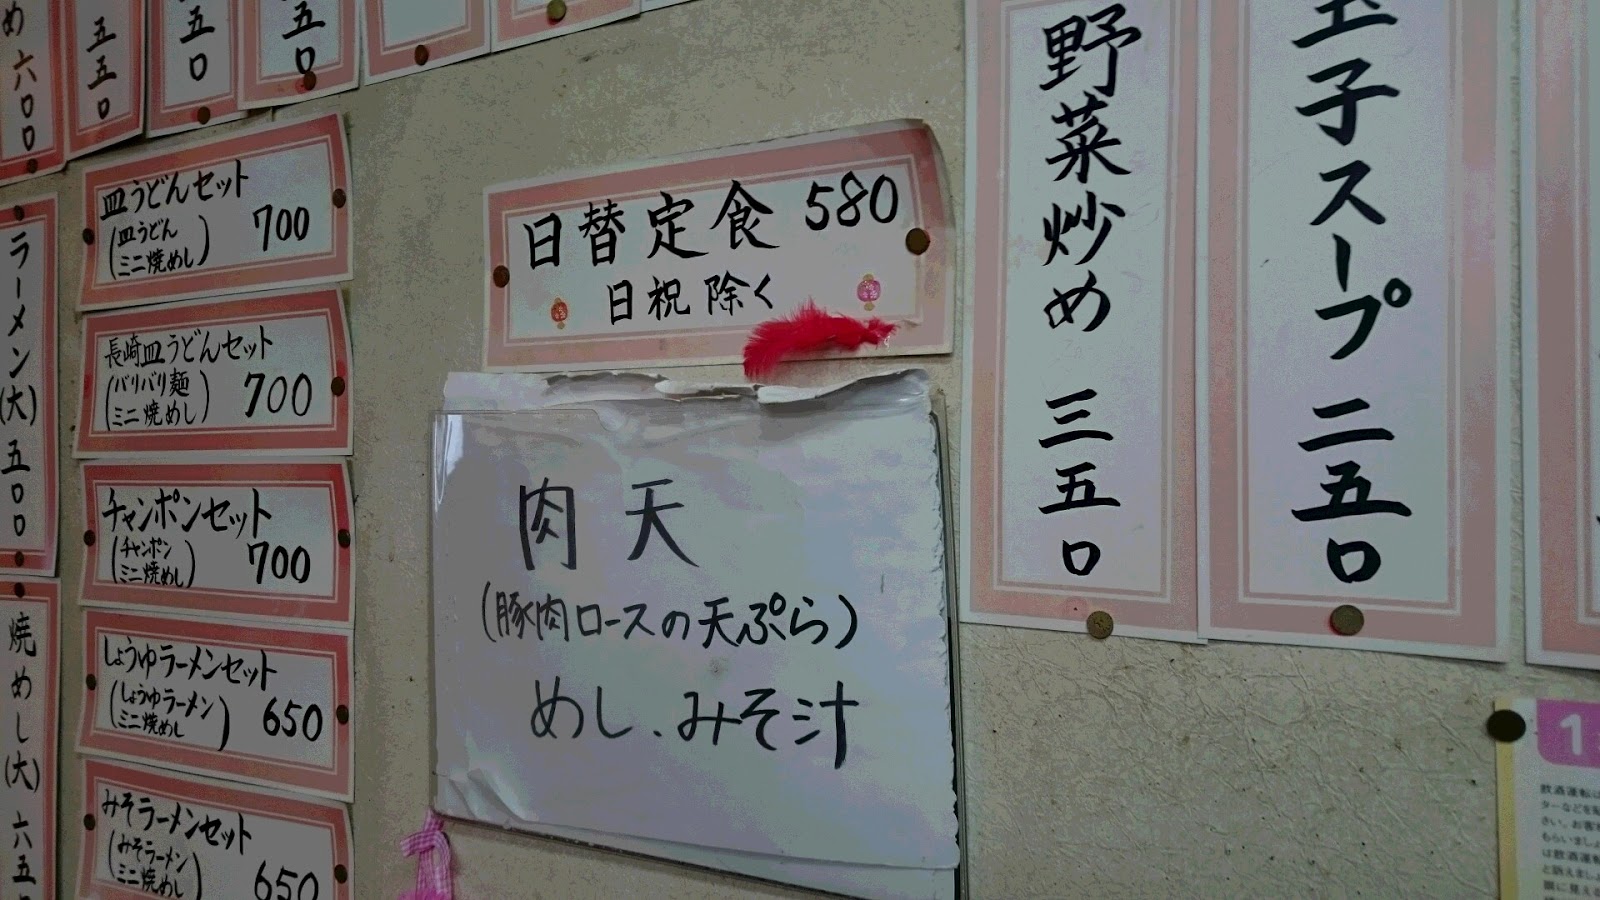 め 六〇〇
五五〇
五〇
五〇
皿うどんセット
(皿うどん
ミニ焼めし) 700
長崎皿うどんセット
(バリバリ麺
ミニ焼めし) 700
チャンポンセット
(チャンポン
ミニ焼めし) 700
しょうゆラーメンセット
(しょうゆラーメン
ミニ焼めし) 650
みそラーメンセット
(みそラーメン
ミニ焼めし) 650
ラーメン(大) 五〇〇
焼めし(大) 六五
日替定食 580
日祝除く
肉天
(豚肉ロースの天ぷら)
めし、みそ汁
野菜炒め 三五〇
玉子スープ 二五〇
1
飲酒運転は